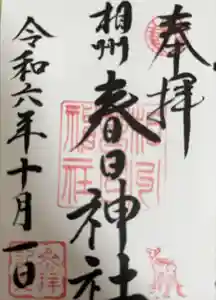 奉拝
相州
春日神社
令和六年十月一日